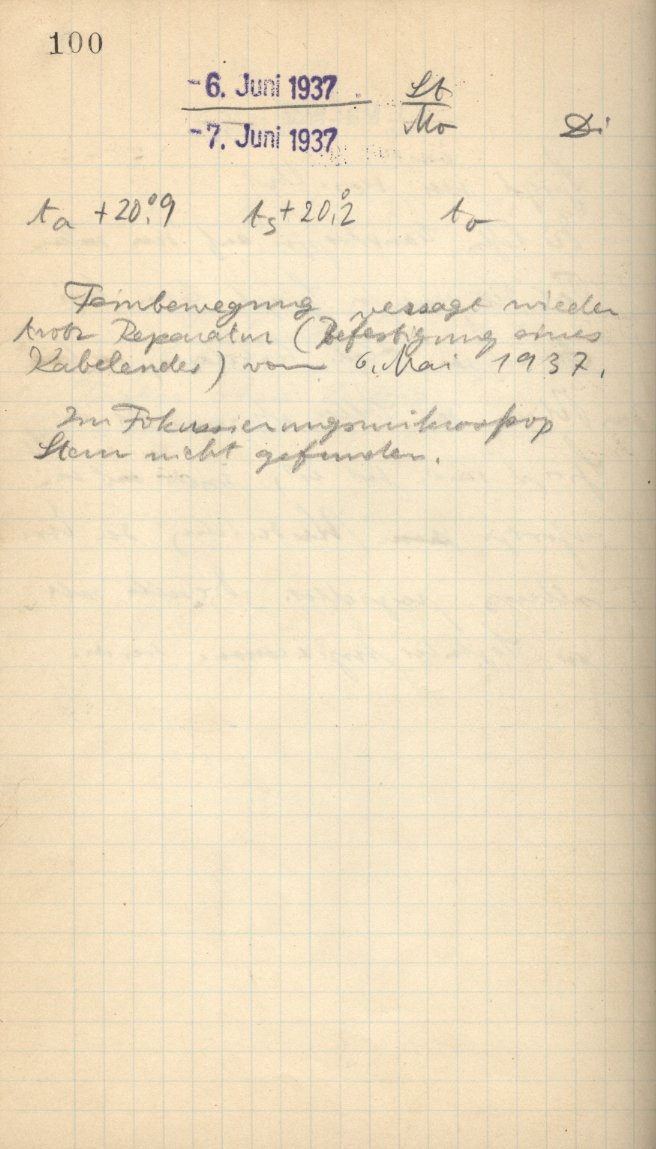 100
-6. Juni 1937 St
-7. Juni 1937 Mo Di
ta +20°,9 ts +20°,2 to
Feinbewegung versagt wieder
trotz Reparatur (Befestigung eines
Kabelendes) vom 6. Mai 1937.
Im Fokussierungsmikroskop
Stern nicht gefunden.